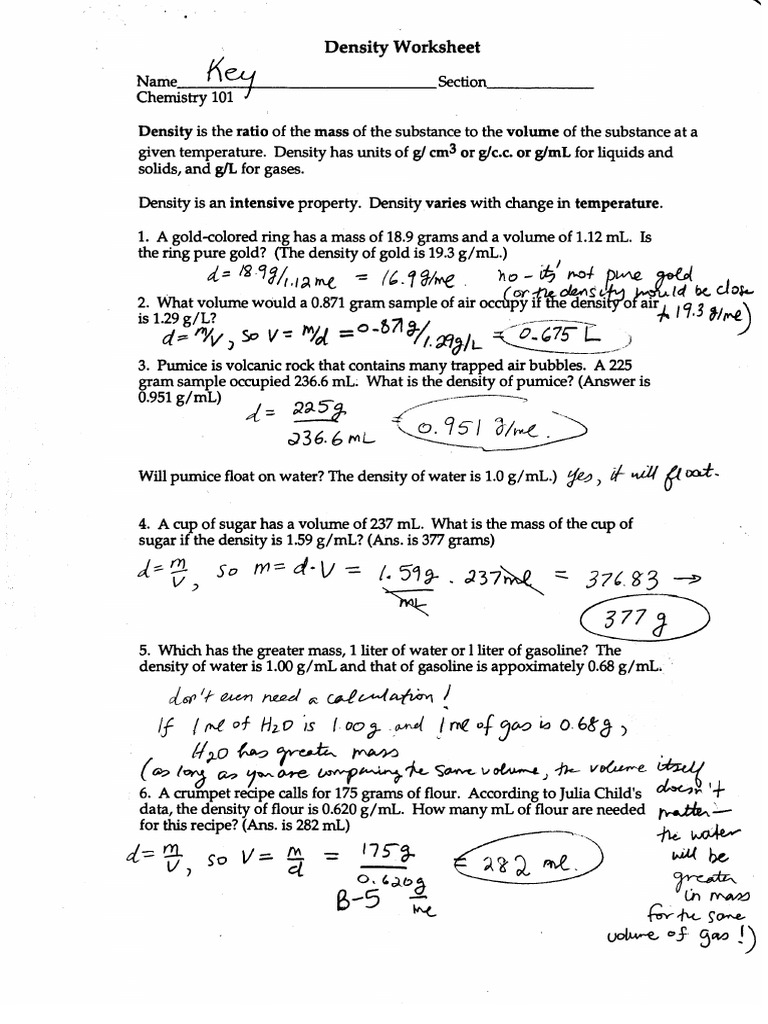 Density Worksheet
Name Key Section
Chemistry 101
Density is the ratio of the mass of the substance to the volume of the substance at a
given temperature. Density has units of g/ cm3 or g/c.c. or g/mL for liquids and
solids, and g/L for gases.
Density is an intensive property. Density varies with change in temperature.
1. A gold-colored ring has a mass of 18.9 grams and a volume of 1.12 mL. Is
the ring pure gold? (The density of gold is 19.3 g/mL.)
d= 18.9g/1.12 mL = 16.9g/mL no - its' not pure gold
(or the density would be close
to 19.3 g/mL)
2. What volume would a 0.871 gram sample of air occupy if the density of air
is 1.29 g/L?
d= m/V, so V = m/d = 0.871g/1.29g/L = 0.675 L
3. Pumice is volcanic rock that contains many trapped air bubbles. A 225
gram sample occupied 236.6 mL. What is the density of pumice? (Answer is
0.951 g/mL)
d= 225g / 236.6 mL = 0.951 g/mL.
Will pumice float on water? The density of water is 1.0 g/mL.) yes, it will float.
4. A cup of sugar has a volume of 237 mL. What is the mass of the cup of
sugar if the density is 1.59 g/mL? (Ans. is 377 grams)
d= m/V, so m= d·V = 1.59g/mL · 237mL = 376.83 →
377 g
5. Which has the greater mass, 1 liter of water or 1 liter of gasoline? The
density of water is 1.00 g/mL and that of gasoline is appoximately 0.68 g/mL.
don't even need a calculation!
If 1 mL of H2O is 1.00g and 1 mL of gas is 0.68g,
H2O has greater mass
(as long as you are comparing the same volume, the volume itself
doesn't
matter—
the water
will be
greater
in mass
for the same
volume of gas!)
6. A crumpet recipe calls for 175 grams of flour. According to Julia Child's
data, the density of flour is 0.620 g/mL. How many mL of flour are needed
for this recipe? (Ans. is 282 mL)
d= m/V, so V= m/d = 175g / 0.620g/mL = 282 mL.
B-5